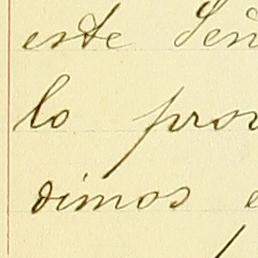 este Señ
lo prov
dimos e